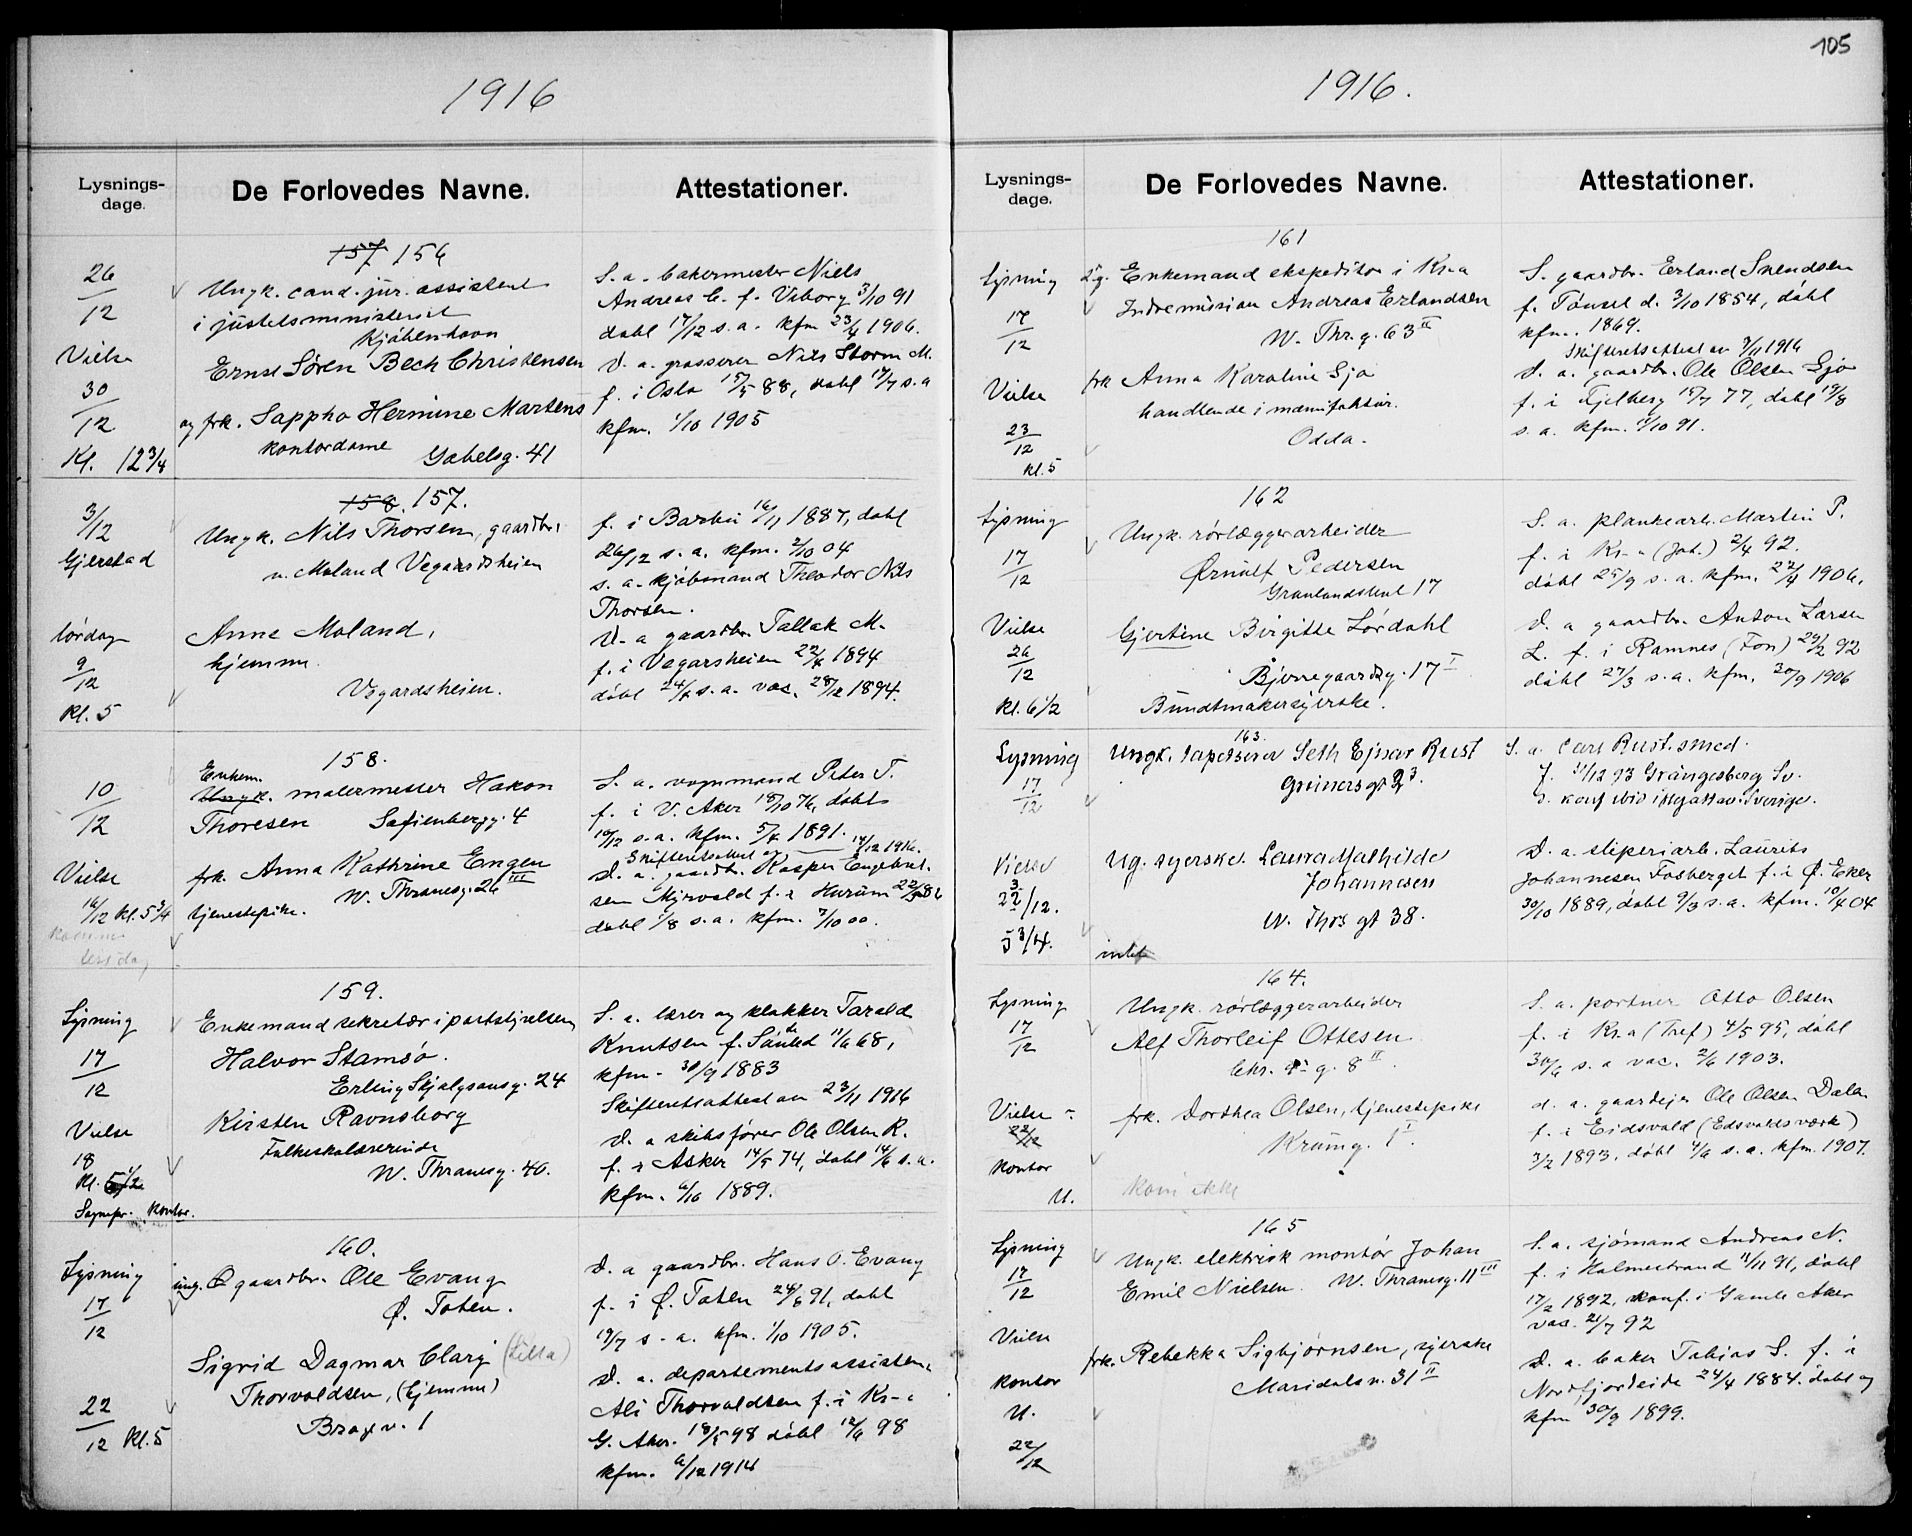 105
1916
Lysnings-
dage.
De Forlovedes Navne.
Attestationer.
26
12
Vielse
30
12
Kl. 12 3/4
157 156
Ungk. cand. jur. assistent
i justitsministeriet
Kjøbenhavn
Ernst Søren Bech Christensen
og frk. Sappho Hermine Martens
kontordame Gabelsg. 41
S. a. bakermester Niels
Andreas C. f. Viborg 3/10 91
døbt 17/12 s. a. kfm 23/4 1906.
D. a. grosserer Nils Storm M.
f. i Oslo 15/5 88, døbt 17/7 s. a
kfm. 1/10 1905
3/12
Gjerstad
lørdag
9
12
Kl. 5
158. 157.
Ungk. Nils Thorsen, gaardbr.
Moland Vegardsheien
Anne Moland,
hjemme
Vegardsheien.
f. i Barbu 16/11 1887, døbt
26/12 s. a. kfm. 2/10 04
s. a. kjøbmand Theodor Nils
Thorsen.
D. a gaardbr. Tallak M.
f. i Vegarsheien 22/4 1894
døbt 24/6 s. a. vac. 28/12 1894.
10
12
Vielse
16/12 kl. 5 3/4
158.
Enkem.
Ungk. malermester Hakon
Thoresen Sofienbergg. 4
frk. Anna Kathrine Engen
W. Thranesg. 26 III
tjenestepike.
S. a. vognmand Peter T.
f. i V. Aker 18/10 76, døbt
10/12 s. a. kfm. 5/4 1891.
Skifteretsattest av 14/12 1916.
D. a. gaardbr. Kasper Engebret-
sen Myrvold f. i Hurum 22/5 86
døbt 1/8 s. a. kfm. 7/10 00.
Lysning
17
12
Vielse
18
Kl. 6 1/2
Kontor.
159.
Enkemand sekretær i poststyrelsen
Halvor Stamsø.
Erling Skjalgsønsg. 24
Kirsten Ravnsborg
Folkeskolelærerinde
W. Thranesg. 40.
S. a. lærer og klokker Tarald
Knutsen f. 11/6 68,
kfm. 30/9 1883
Skifteretsattest av 23/11 1916
D. a skibsfører Ole Olsen R.
f. i Asker 14/5 74, døbt 14/6 s. a.
kfm. 6/10 1889.
Lysning
17
12
22
12 kl. 5
160.
ung. gaardbr. Ole Evang
Ø. Toten.
Sigrid Dagmar Clary (Lilla)
Thorvaldsen, (hjemme)
Brag v. 1
D. a gaardbr. Hans O. Evang
f. i Ø. Toten 24/6 91, døbt
19/7 s. a. kfm. 1/10 1905.
D. a. departementsassistent
Ali Thorvaldsen f. i Kr-a
G. Aker. 18/5 98 døbt 12/6 98
kfm. 6/12 1914
1916.
Lysnings-
dage.
De Forlovedes Navne.
Attestationer.
Lysning
17
12
Vielse
23
12
kl. 5
161
Enkemand ekspeditør i Kr-a
Indremission Andreas Erlandsen
W. Thr. g. 63 II
frk Anna Karoline Gjo
handlende i manufaktur.
Odda.
S. gaardbr. Erland Svendsen
f. Tønset d. 3/10 1854, døbt
kfm. 1869.
Skifteretsattest av 7/11 1916
D. a. gaardbr. Ole Olsen Gjo
f. i Fjelberg 19/7 77, døbt 19/8
s. a. kfm. 4/10 91.
Lysning
17
12
Vielse
26
12
Kl. 6 1/2
162
Ungk. rørlæggerarbeider
Ørnulf Pedersen
Grønlandsleiret 17
Gjertine Birgitte Lørdahl
Bjerregaardsg. 17 I
Bundtmakersyerske.
S. a. plankearb. Martin P.
f. i Kr-a (Joh.) 2/4 92.
døbt 25/9 s. a. kfm. 22/4 1906.
D. a gaardbr. Anton Larsen
L. f. i Ramnes (Fon) 29/2 92
døbt 27/3 s. a. kfm. 30/9 1906
Lysning
17
12
Vielse
22/12.
5 3/4.
163.
Ungk. tapetserer Seth Ejnar Rust
Grüners gt 23.
Ug. syerske Laura Mathilde
Johannesen
W. Thrs gt 38.
S. a. Carl Rust. smed.
f. 11/12 93 Grängesberg Sv.
D. a. sliperiarb. Laurits
Johannesen Fosberget f. i Ø. Eker
30/10 1889, døbt 9/3 s. a. kfm. 10/4 04
Lysning
17
12
Vielse
22/12
Kontor
U.
164.
Ungk. rørlæggerarbeider
Alf Thorleif Ottesen
Chr. g. 8 II
frk. Dorthea Olsen, tjenestepike
Krumg. 1 I
Kom ikke
S. a. portner Otto Olsen
f. i Kr.a (Tref) 4/5 95, døbt
30/6 s. a vac. 2/6 1903.
d. a. gaardejer Ole Olsen Dalen
f. i Eidsvold (Edsvoldsværk)
3/2 1893. døbt 4/6 s. a. kfm. 1907.
Lysning
17
12
Vielse
Kontor
U.
22/12
165
Ungk. elektrisk montør Johan
Emil Nielsen. W. Thranesg. 11 III
frk. Rebekka Sigbjørnsen, syerske
Maridalsv. 31 II
S. a. sjømand Andreas N.
f. i Holmestrand 11/11 91, døbt
17/2 1892, konf. i Gamle Aker
vac. 21/7 92
D. a. baker Tobias S. f. i
Nordfjordeide 24/4 1884. døbt og
kfm 30/9 1899.